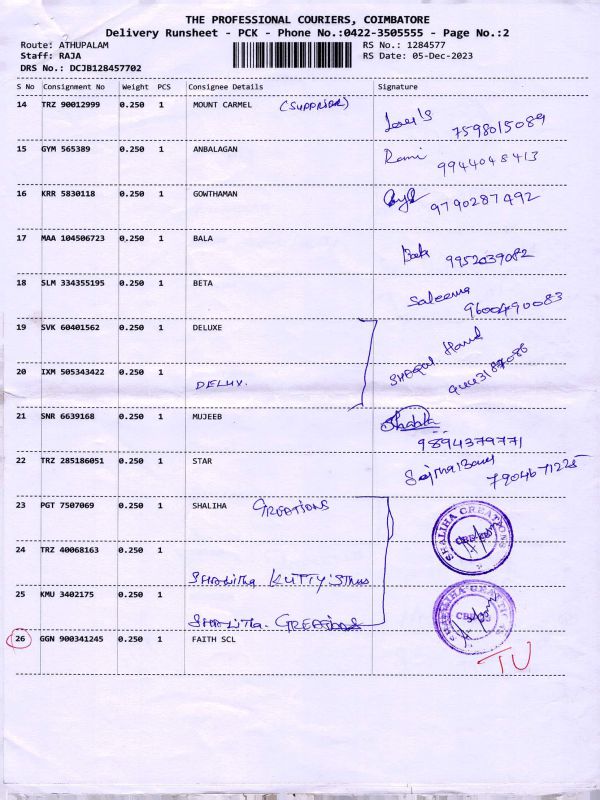 THE PROFESSIONAL COURIERS, COIMBATORE
Delivery Runsheet - PCK - Phone No.:0422-3505555 - Page No.:2
Route: ATHUPALAM RS No.: 1284577
Staff: RAJA RS Date: 05-Dec-2023
DRS No.: DCJB128457702
S No Consignment No Weight PCS Consignee Details Signature
14 TRZ 90012999 0.250 1 MOUNT CARMEL
7598015089
15 GYM 565389 0.250 1 ANBALAGAN Rami
9944048413
16 KRR 5830118 0.250 1 GOWTHAMAN
9790287492
17 MAA 104506723 0.250 1 BALA
9952039082
18 SLM 334355195 0.250 1 BETA Saleema
9600490083
19 SVK 60401562 0.250 1 DELUXE
20 IXM 505343422 0.250 1
21 SNR 6639168 0.250 1 MUJEEB
9894379771
22 TRZ 285186051 0.250 1 STAR
7904671225
23 PGT 7507069 0.250 1 SHALIHA CREATIONS SHALIHA CREATIONS
24 TRZ 40068163 0.250 1
KUTTY
25 KMU 3402175 0.250 1 SHALIHA CREATIONS
CREATIONS
26 GGN 900341245 0.250 1 FAITH SCL
TU